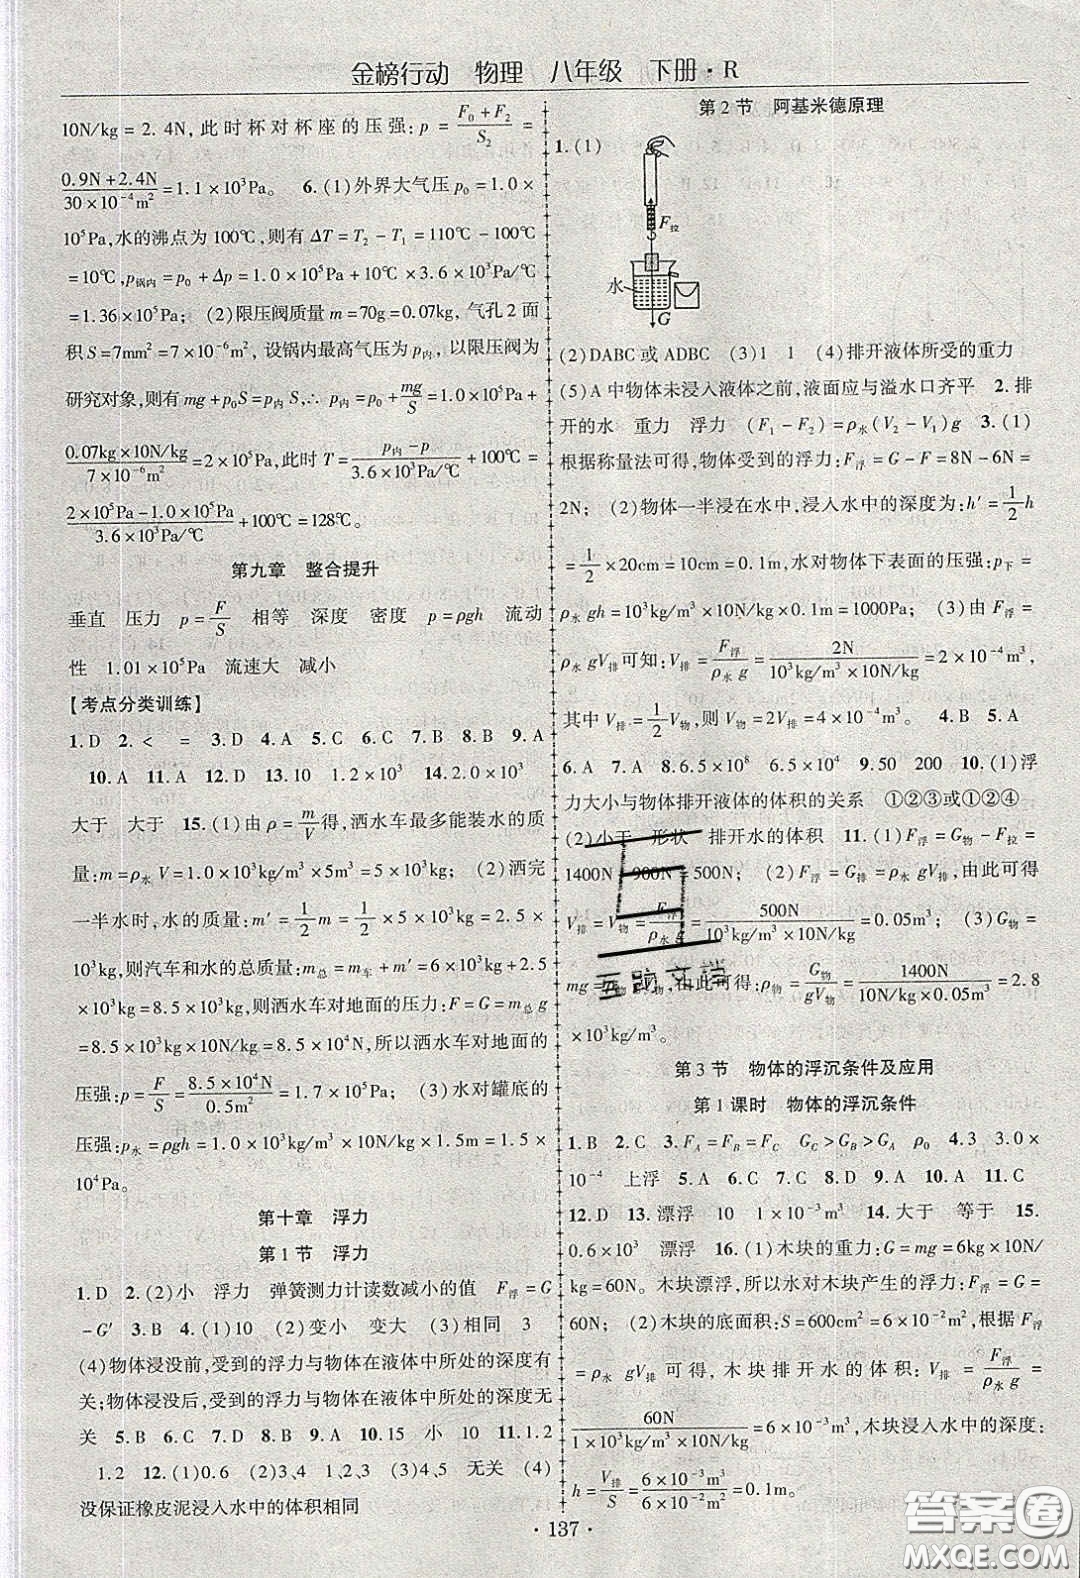 金榜行动 物理 八年级 下册·R
10N/kg = 2.4N,此时杯对杯座的压强:p = (F₀ + F₂)/S₂ =
(0.9N+2.4N)/(30×10⁻⁴m²) = 1.1×10³Pa。 6.(1)外界大气压 p₀ = 1.0×
10⁵Pa,水的沸点为100℃,则有 ΔT = T₂ - T₁ = 110℃ - 100℃
=10℃,p锅内 = p₀ + Δp = 1.0×10⁵Pa + 10℃×3.6×10³Pa/℃ =
1.36×10⁵Pa; (2)限压阀质量 m = 70g = 0.07kg,气孔2面
积 S = 7mm² = 7×10⁻⁶m²,设锅内最高气压为 p内,以限压阀为
研究对象,则有 mg + p₀S = p内 S,∴ p内 = p₀ + mg/S = 1.0×10⁵Pa +
(0.07kg×10N/kg)/(7×10⁻⁶m²) = 2×10⁵Pa,此时 T = (p内 - p)/(3.6×10³Pa/℃) + 100℃ =
(2×10⁵Pa - 1.0×10⁵Pa)/(3.6×10³Pa/℃) + 100℃ = 128℃。
第九章 整合提升
垂直 压力 p = F/S 相等 深度 密度 p = ρgh 流动
性 1.01×10⁵Pa 流速大 减小
【考点分类训练】
1.D 2.< = 3.D 4.A 5.C 6.C 7.B 8.B 9.A
10.A 11.A 12.D 13.10 1.2×10³ 14.2.0×10³
大于 大于 15.(1)由 ρ = m/V 得,洒水车最多能装水的质
量:m = ρ水 V = 1.0×10³kg/m³×5m³ = 5×10³kg; (2)洒完
一半水时,水的质量:m′ = 1/2 m = 1/2 ×5×10³kg = 2.5×
10³kg,则汽车和水的总质量:m总 = m车 + m′ = 6×10³kg + 2.5
×10³kg = 8.5×10³kg,则洒水车对地面的压力:F = G = m总 g
= 8.5×10³kg×10N/kg = 8.5×10⁴N,所以洒水车对地面的
压强:p = F/S = (8.5×10⁴N)/(0.5m²) = 1.7×10⁵Pa; (3)水对罐底的
压强:p水 = ρgh = 1.0×10³kg/m³×10N/kg×1.5m = 1.5×
10⁴Pa。
第十章 浮力
第1节 浮力
1.D 2.(2)小 浮力 弹簧测力计读数减小的值 F浮 = G
- G′ 3.B 4.(1)10 (2)变小 变大 (3)相同 3
(4)物体浸没前,受到的浮力与物体在液体中所处的深度有
关;物体浸没后,受到的浮力与物体在液体中所处的深度无
关 5.B 6.C 7.B 8.B 9.A 10.15 小 10 11.1.2
1.2 12.(1)0.6 (2)3、4 1、3 (3)1、4、5 无关 (4)
没保证橡皮泥浸入水中的体积相同
第2节 阿基米德原理
1.(1)
F拉
水
G
(2)DABC或ADBC (3)1 1 (4)排开液体所受的重力
(5)A中物体未浸入液体之前,液面应与溢水口齐平 2.排
开的水 重力 浮力 (F₁ - F₂) = ρ水(V₂ - V₁)g 3.(1)
根据称量法可得,物体受到的浮力:F浮 = G - F = 8N - 6N =
2N; (2)物体一半浸在水中,浸入水中的深度为:h′ = 1/2 h
= 1/2 ×20cm = 10cm = 0.1m,水对物体下表面的压强:p下 =
ρ水 gh = 10³kg/m³×10N/kg×0.1m = 1000Pa; (3)由 F浮 =
ρ水 gV排可知:V排 = F浮/(ρ水 g) = 2N/(10³kg/m³×10N/kg) = 2×10⁻⁴m³,
其中 V排 = 1/2 V物,则 V物 = 2V排 = 4×10⁻⁴m³。 4.B 5.A
6.A 7.A 8.6.5×10⁸ 6.5×10⁴ 9.50 200 10.(1)浮
力大小与物体排开液体的体积的关系 ①②③或①②④
(2)小于 形状 排开水的体积 11.(1)F浮 = G物 - F拉 =
1400N - 900N = 500N; (2)F浮 = G排 = ρ水 gV排,由此可得
V排 = V物 = F浮/(ρ水 g) = 500N/(10³kg/m³×10N/kg) = 0.05m³; (3)G物 =
mg = 物 物,由此可得:ρ物 = G物/(gV物) = 1400N/(10N/kg×0.05m³) = 2.8
×10³kg/m³。
第3节 物体的浮沉条件及应用
第1课时 物体的浮沉条件
1.B 2.C 3.F_A = F_B = F_C G_C > G_B > G_A ρ₀ 4.3 3.0×
10⁻⁴ 上浮 5.A 6.C 7.B 8.D 9.A 10.A 11.C
12.D 13.漂浮 10 1×10⁻³m³ 14.大于 等于 15.
0.6×10³ 漂浮 16.(1)木块的重力:G = mg = 6kg×10N/
kg = 60N。木块漂浮,所以水对木块产生的浮力:F浮 = G =
60N; (2)木块的底面积:S = 600cm² = 6×10⁻²m²,根据 F浮
= ρ水 gV排 可得,木块排开水的体积:V排 = F浮/(ρ水 g) =
60N/(1×10³kg/m³×10N/kg) = 6×10⁻³m³,木块浸入水中的深度:
h = V排/S = (6×10⁻³m³)/(6×10⁻²m²) = 0.1m。
· 137 ·
答案圈
MXQE.COM